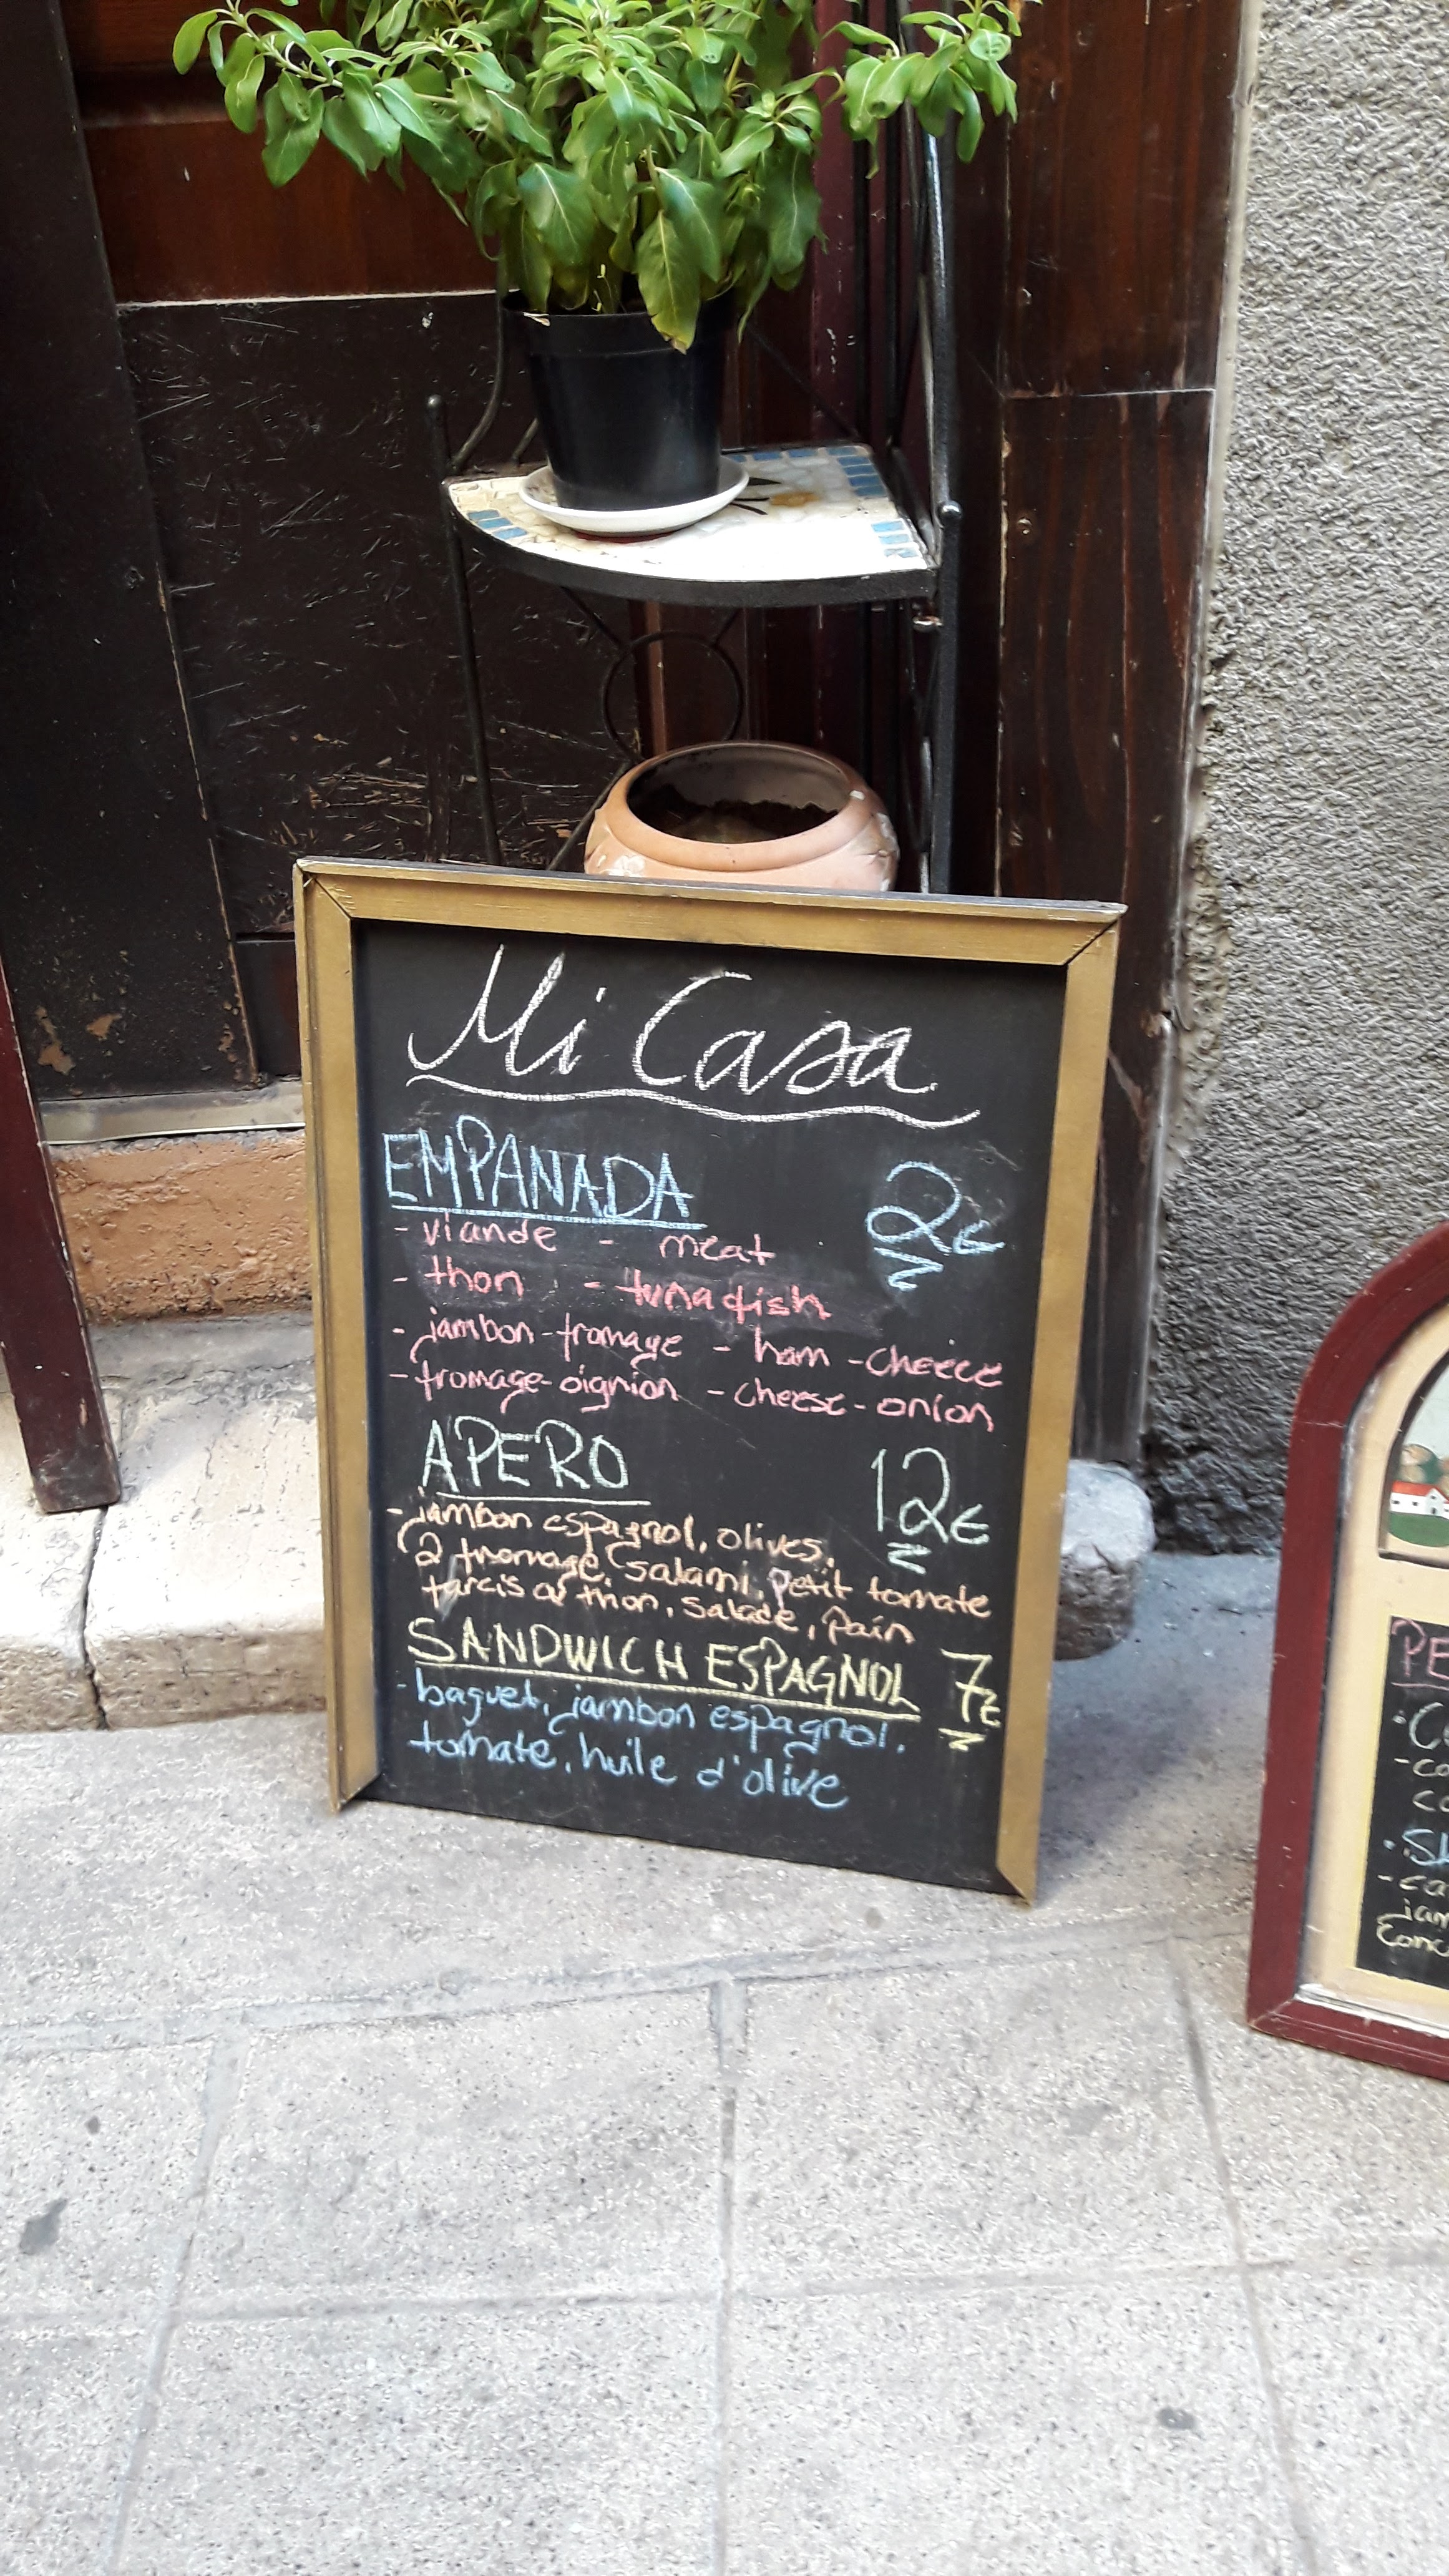 Mi Casa
EMPANADA 2€
- viande - meat
- thon - tunafish
- jambon-fromage - ham-cheece
- fromage-oignion - cheese-onion
APERO 12€
- jambon espagnol, olives,
2 fromage, salami, petit tomate
farcis au thon, salade, pain
SANDWICH ESPAGNOL 7€
- baguet, jambon espagnol,
tomate, huile d'olive
PE